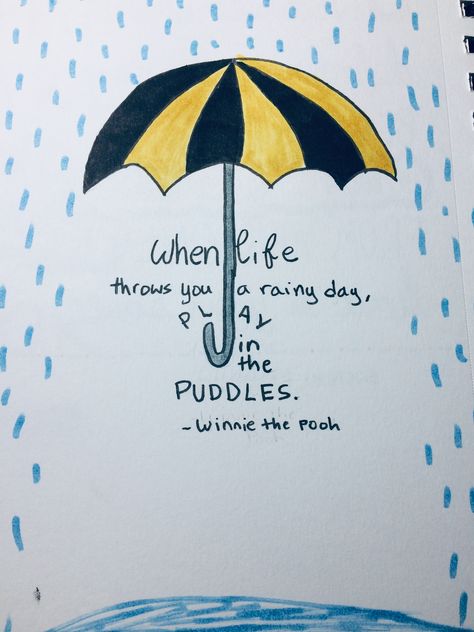 When life
throws you a rainy day,
PLAY
in
the
PUDDLES.
~Winnie the Pooh